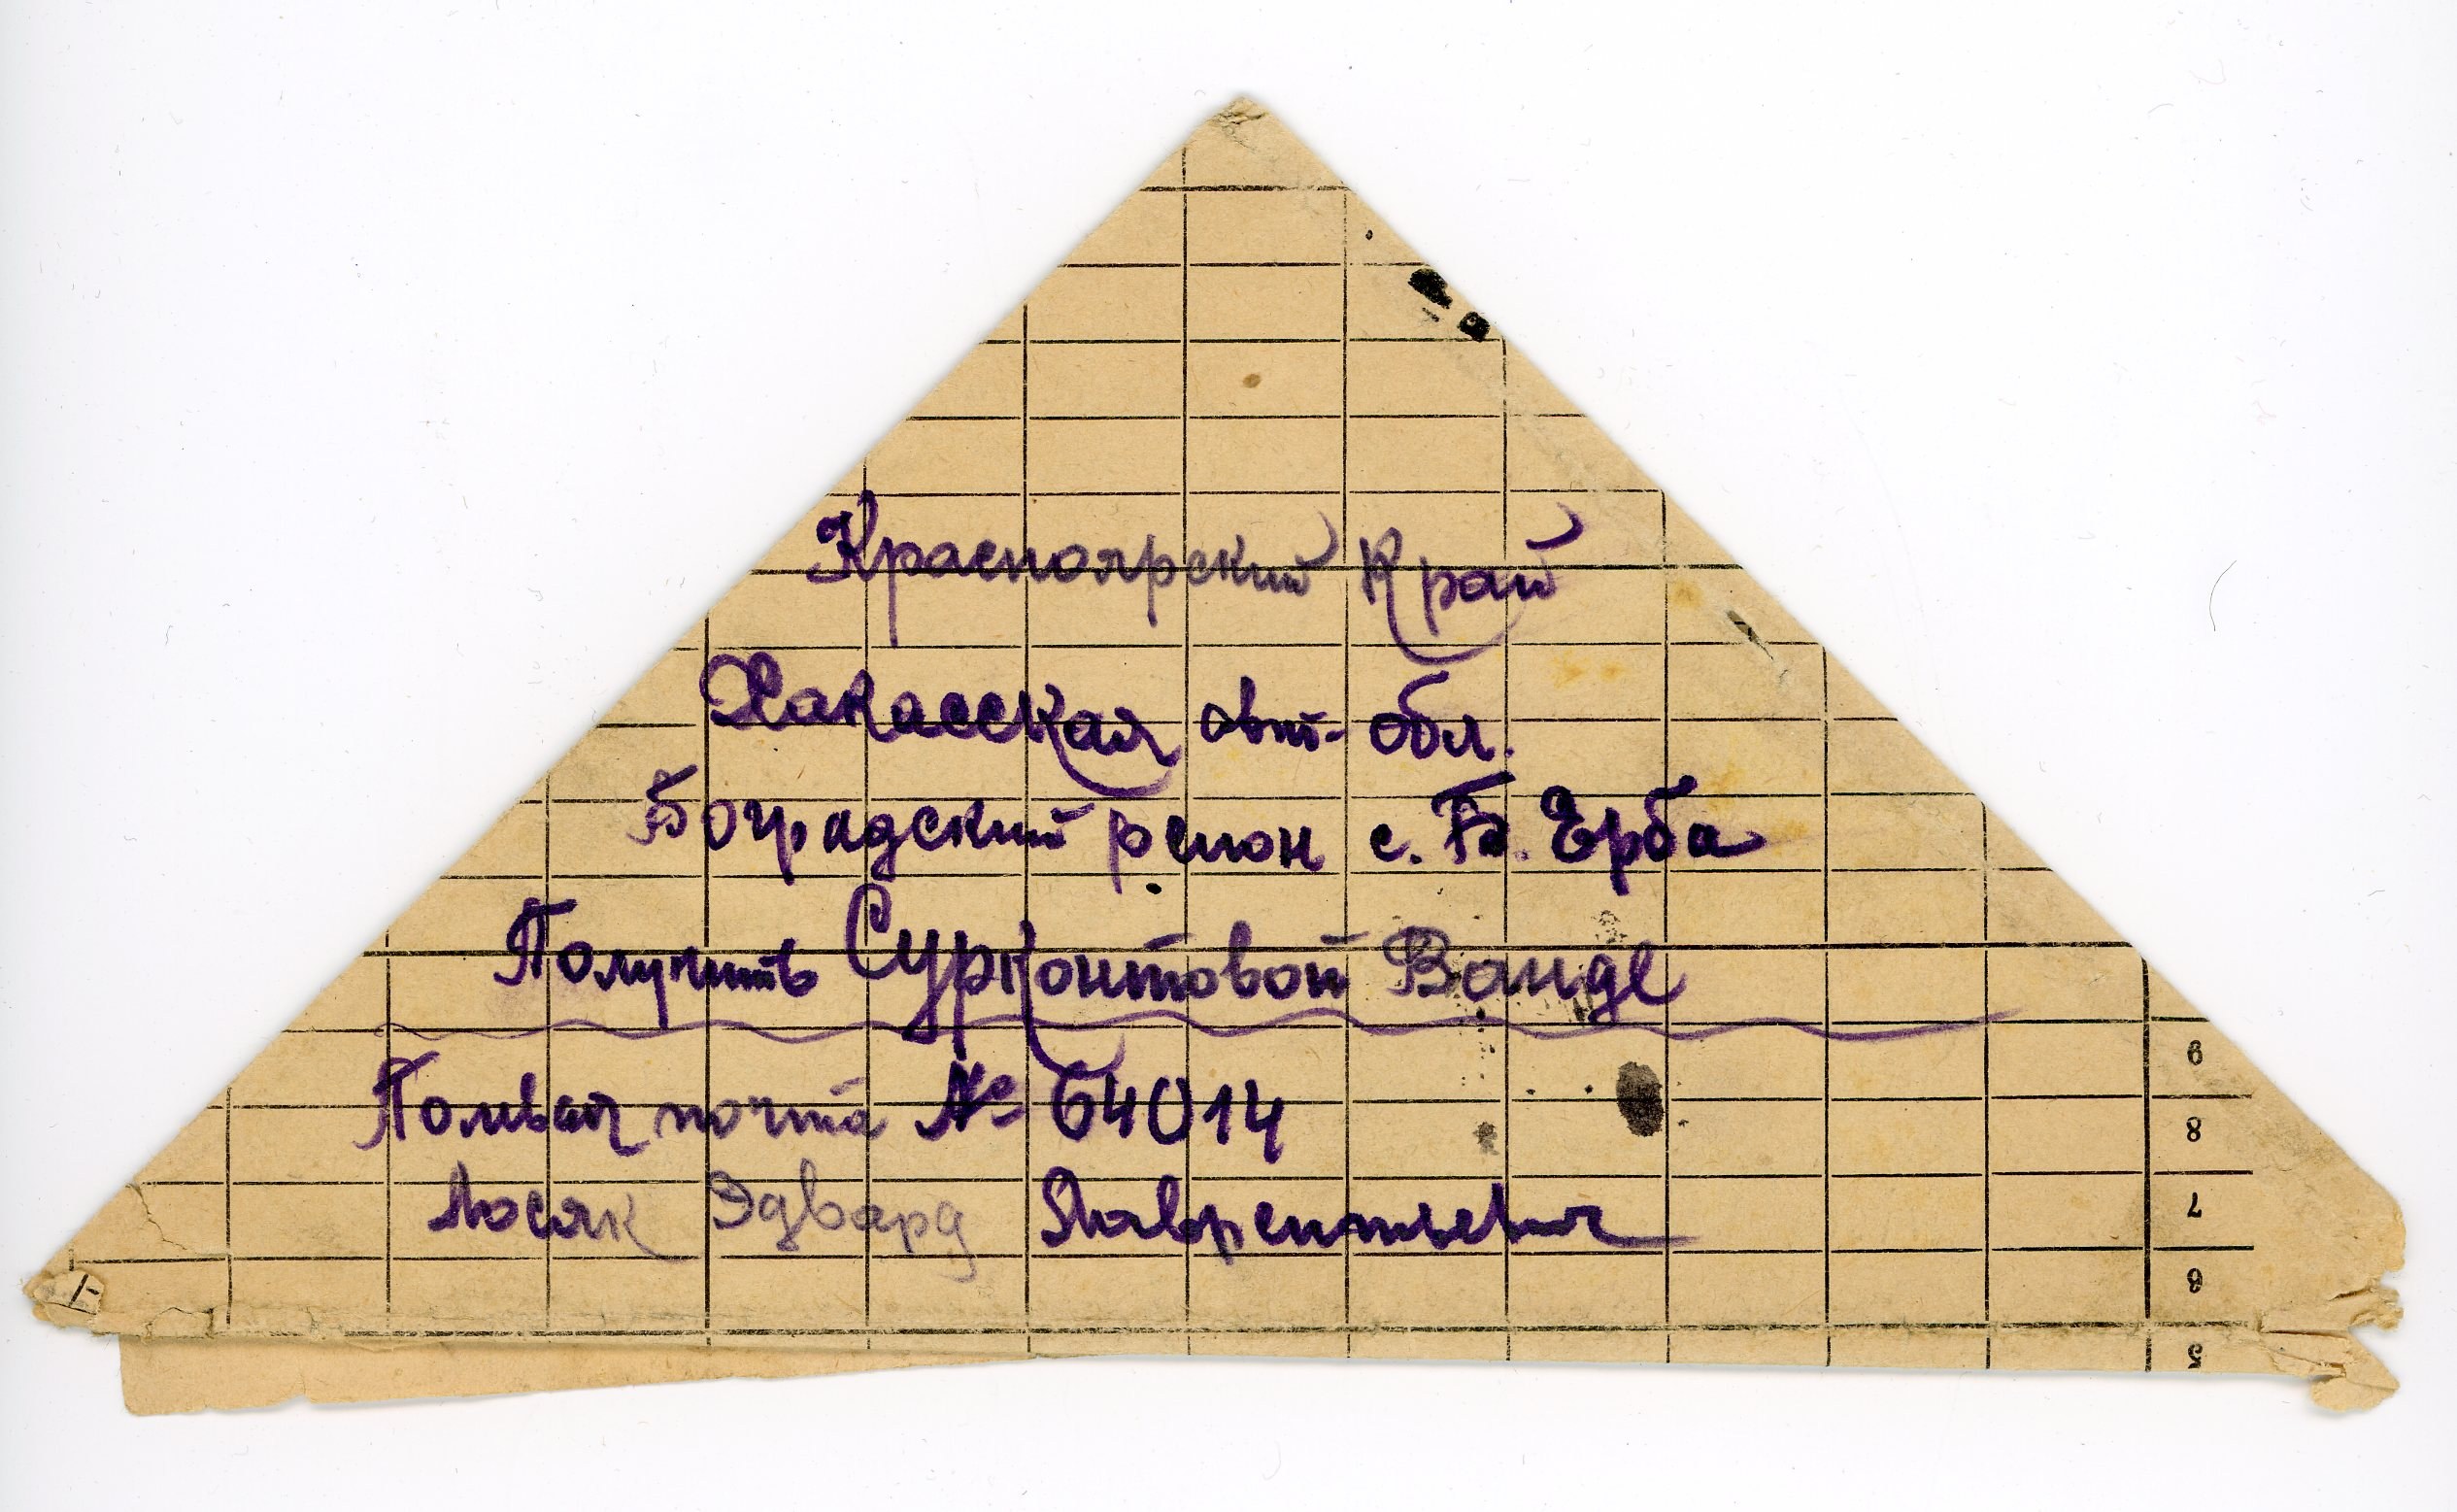 Красноярский Край
Хакасская авт. обл.
Боградский район с. Б. Ерба
Получить Сурконтовой Ванде
Полевая почта № 64014
Лосяк Эдвард Лаврентьевич
9
8
7
6
5